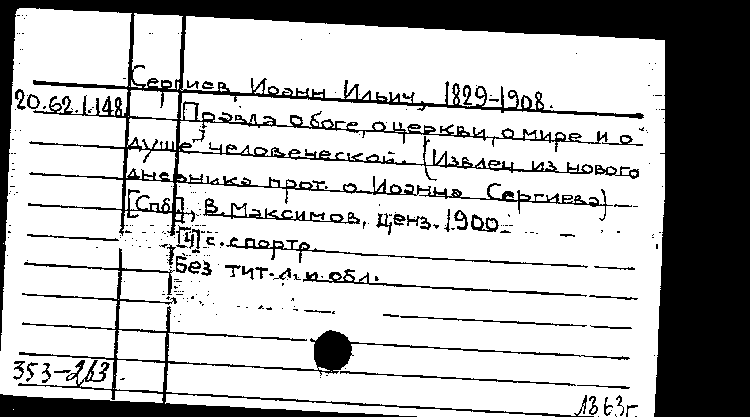 Сергиев, Иоанн Ильич, 1829-1908.
20.62.1.148 Правда о боге, о церкви, о мире и о
душе человеческой. (Извлеч. из нового
дневника прот. о Иоанна Сергиева)
[Спб.], В. Максимов, ценз. 1900
[4] с. с портр.
Без тит. л. и обл.
353-263
1363г.